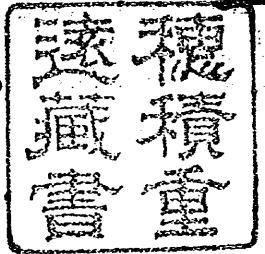 穂積重
遠藏書